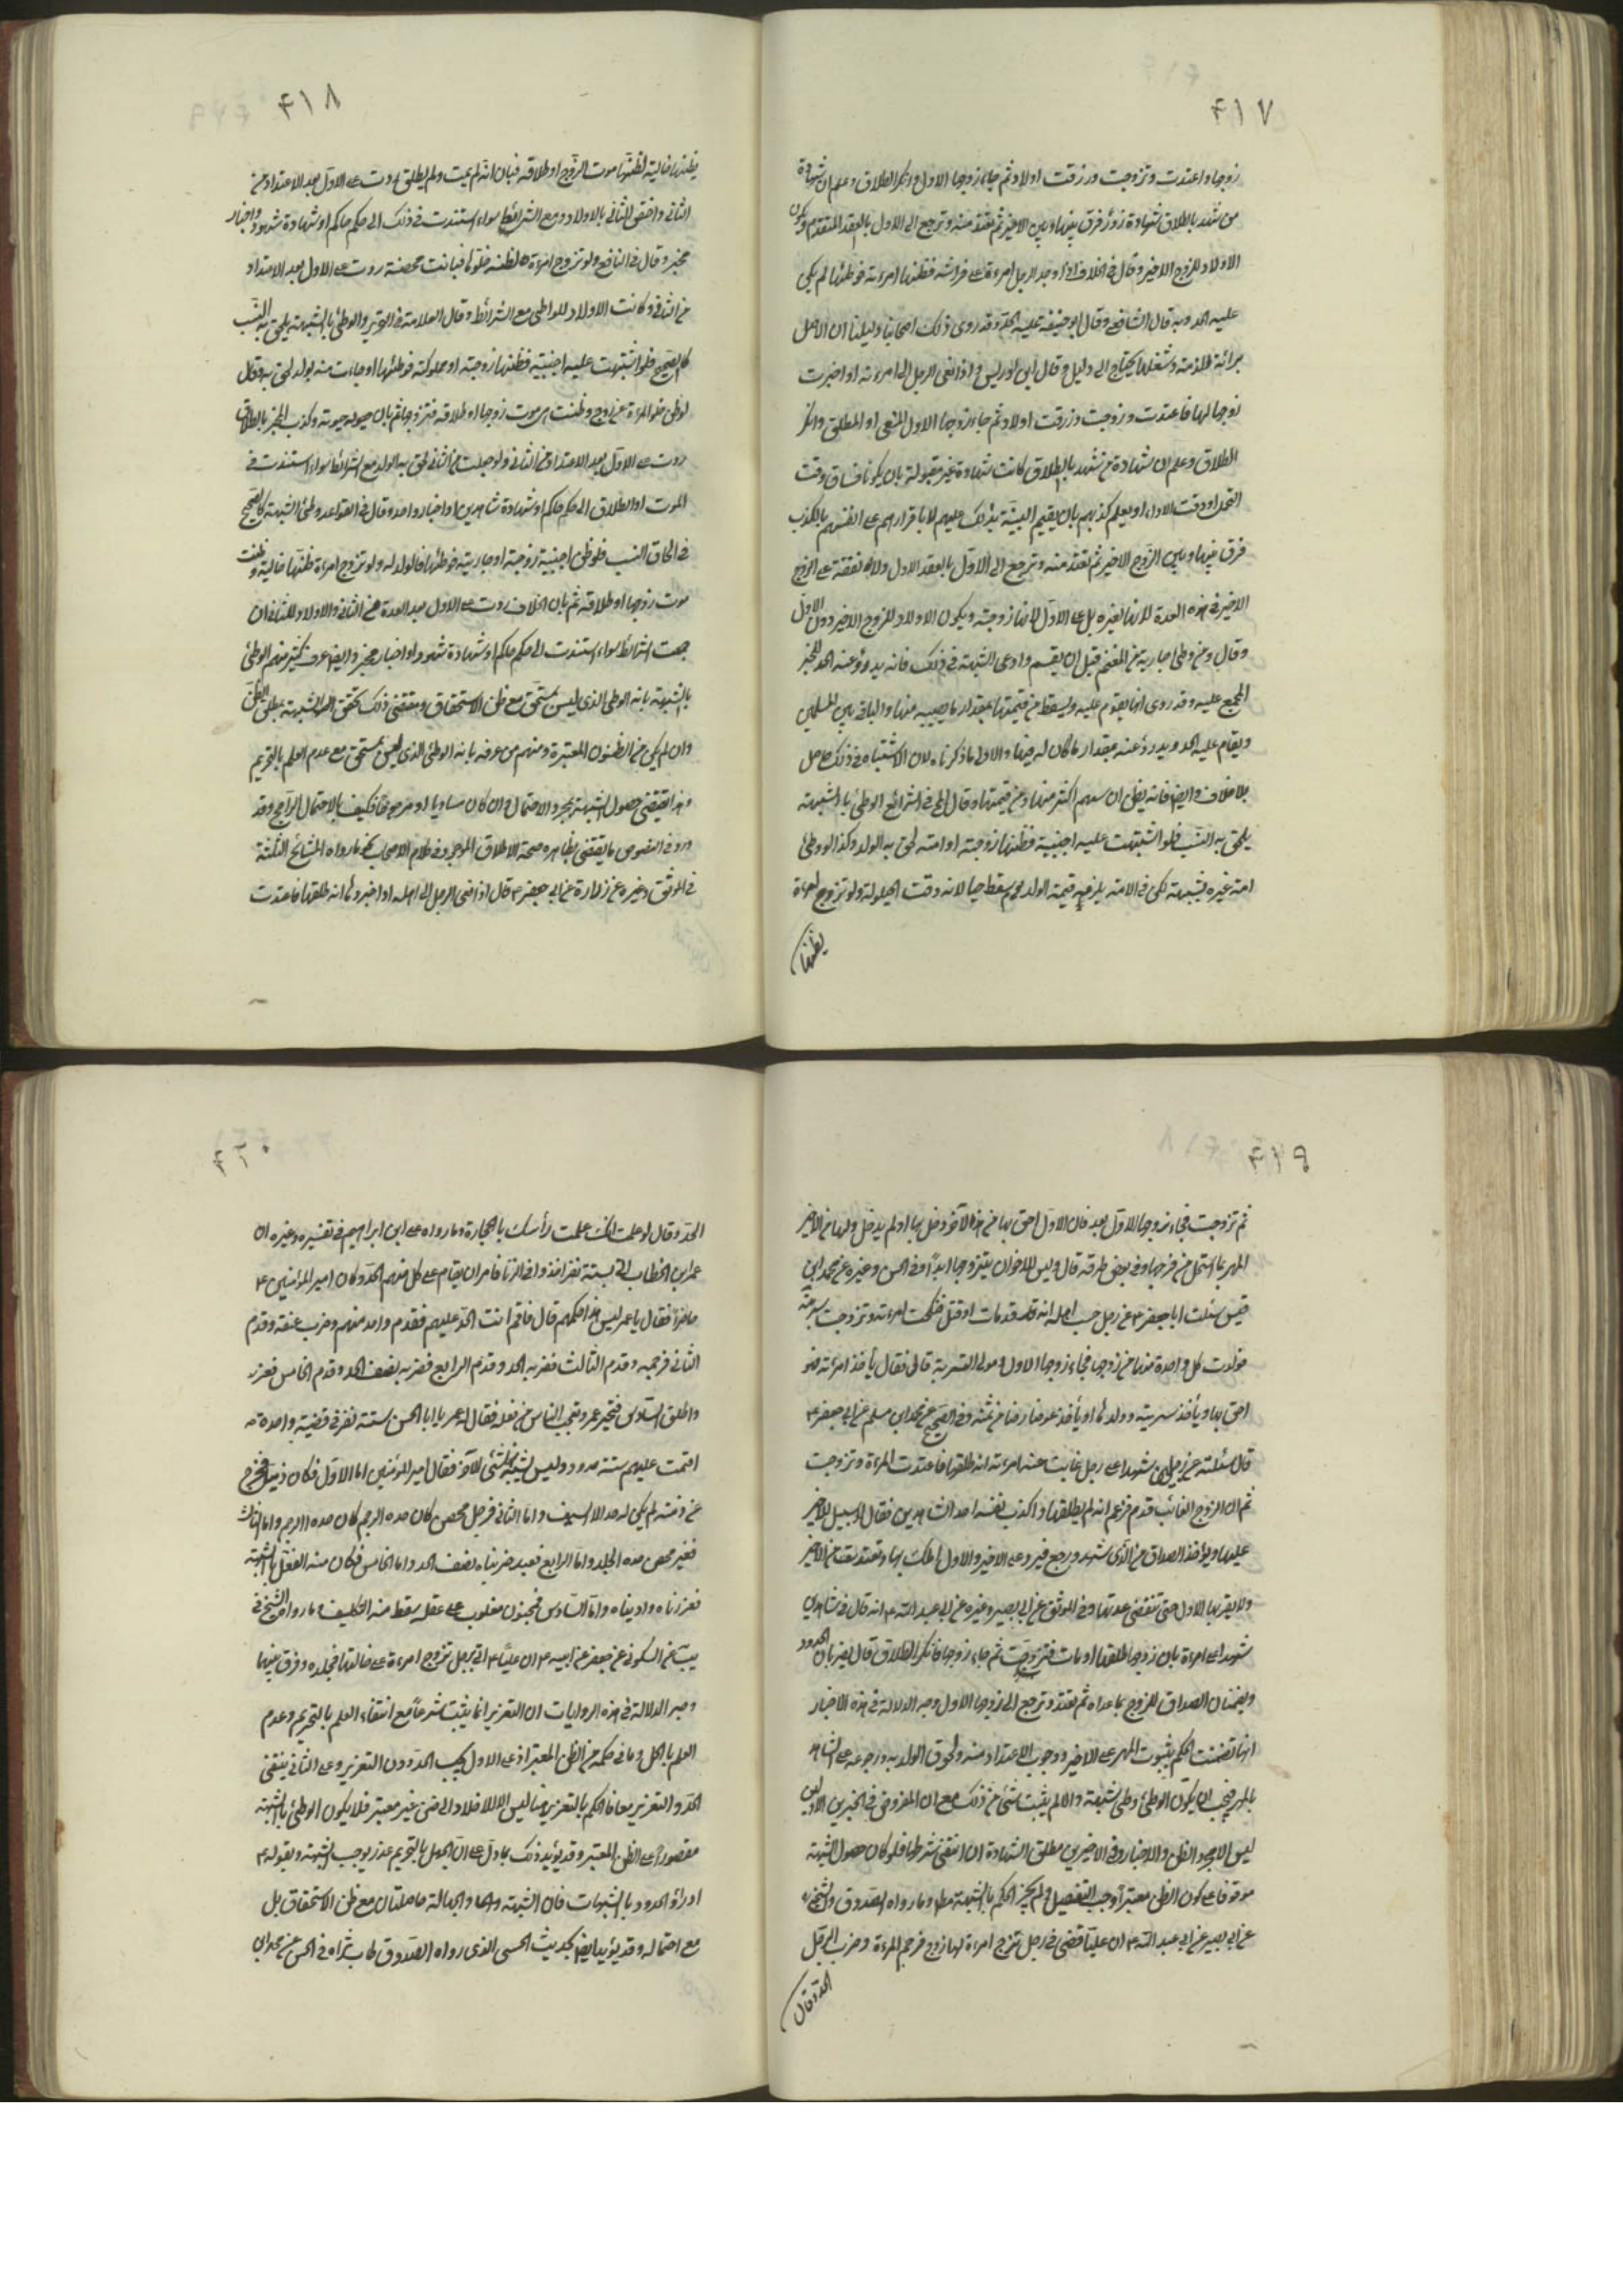 ۴۱۷
زوجها واعتدت وتزوجت ورزقت اولاد ثم جاء زوجها الاول وانكر الطلاق وعلم ان شهادة
من شهد بالطلاق شهادة زور فرق بينهما وبين الاخير ثم تعتد منه وترجع الى الاول بالعقد المتقدم ويكون
الاولاد للزوج الاخير وقال في الخلاف اذا وجد الرجل امرءة على فراشه فظنها امرءته فوطئها لم يكن
عليه الحد وبه قال الشافعي وقال ابو حنيفة عليه الحد وقد روى ذلك اصحابنا دليلنا ان الاصل
برائة الذمة وشغلها يحتاج الى دليل وقال ابن ادريس و اذا نعى الرجل الى امرءته او اخبرت
زوجها لها فاعتدت وتزوجت ورزقت اولاد ثم جاء زوجها الاول المنعى او المطلق وانكر
الطلاق وعلم ان شهادة من شهد بالطلاق كانت شهادة غير مقبولة بان يكونا فساق وقت
التحمل او وقت الاداء او يعلم كذبهم بان يقيم البينة بذلك عليهم لا باقرارهم على انفسهم بالكذب
فرق بينها وبين الزوج الاخير ثم تعتد منه وترجع الى الاول بالعقد الاول ولا نفقة على الزوج
الاخير في هذه العدة لانها لغيره بل على الاول لانها زوجته ويكون الاولاد للزوج الاخير دون الاول
وقال ومن وطئ جارية من المغنم قبل ان يقسم وادعى الشبهة في ذلك فانه يدرؤ عنه الحد للخبر
المجمع عليه وقد روى انها تقوم عليه ويسقط من قيمتها بمقدار ما يصيبه منها والباقي بين المسلمين
ويقام عليه الحد ويدرؤ عنه بمقدار ما كان له فيها والاولى ما ذكرناه لان الاشتباه في ذلك حاصل
بلا خلاف وايضا فانه يظن ان سهمه اكثر منها ومن قيمتها وقال في الشرائع الوطئ بالشبهة
يلحق به النسب فلو اشتبهت عليه اجنبية فظنها زوجته او امته لحق به الولد وكذا لو وطئ
امة غيره بشبهة لكن في الامة يلزمه قيمة الولد يوم سقط حيا لانه وقت الحيلولة ولو تزوج امرءة
يظنها
۴۱۸
يظنها خالية لظنها موت الزوج او طلاقه فبان انه لم يمت ولم يطلق ردت على الاول بعد الاعتداد من
الثاني واختص الثاني بالاولاد ومع الشرائط سواء استندت في ذلك الى حكم حاكم او شهادة شهود واخبار
مخبر وقال في النافع ولو تزوج امرءة لظنه خلوها فبانت محصنة ردت على الاول بعد الاعتداد
من الثاني وكانت الاولاد للواطي مع الشرائط وقال العلامة في التحرير والوطئ بالشبهة يلحق به النسب
كالصحيح فلو اشتبهت عليه اجنبية فظنها زوجته او مملوكته فوطئها او جاءت منه بولد لحق به وقال
لو ظن خلو المرءة عن زوج وظنت هي موت زوجها او طلاقه فتزوجها ثم بان حيوته وكذب المخبر بالطلاق
ردت على الاول بعد الاعتداد من الثاني ولو حبلت من الثاني لحق به الولد مع الشرائط سواء استندت في
الموت او الطلاق الى حكم حاكم او شهادة شاهدين او اخبار واحد وقال في القواعد وطئ الشبهة كالصحيح
في الحاق النسب فلو ظن اجنبية زوجته او جاريته فوطئها فالولد له ولو تزوج امرءة ظنها خالية وظنت
موت زوجها او طلاقه ثم بان الخلاف ردت على الاول بعد العدة من الثاني والاولاد للثاني ان
جمعت الشرائط سواء استندت الى حكم حاكم او شهادة شهود او اخبار مخبر وايضا عرف كثير منهم الوطئ
بالشبهة بانه الوطئ الذي ليس بمستحق مع ظن الاستحقاق ومقتضى ذلك تحقق الشبهة بمطلق الظن
وان لم يكن من الظنون المعتبرة ومنهم من عرفه بانه الوطئ الذي ليس بمستحق مع عدم العلم بالتحريم
وهذا يقتضي حصول الشبهة بمجرد الاحتمال وان كان مساويا او مرجوحا فكيف بالاحتمال الراجح وقد
ورد في النصوص ما يقتضي بظاهره صحة الاطلاق الموجود في كلام الاصحاب كما رواه المشائخ الثلثة
في الموثق وغيره عن زرارة عن ابي جعفر ع قال اذا نعى الرجل الى اهله او اخبروها انه طلقها فاعتدت
۴۱۹
ثم تزوجت فجاء زوجها الاول بعد فان الاول احق بها من هذا الآخر دخل بها او لم يدخل ولها من الاخير
المهر بما استحل من فرجها وفي بعض طرقه قال وليس للاخر ان يتزوجها ابدا وفي الحسن وغيره عن محمد ابن
قيس سئلت ابا جعفر ع عن رجل حسب اهله انه قد مات او قتل فنكحت امرءته وتزوجت سريته
فولدت كل واحدة منهما من زوجها فجاء زوجها الاول ومولى السرية قال فقال يأخذ امرءته فهو
احق بها ويأخذ سريته وولدها او يأخذ عوضا رضا من ثمنه وفي الصحيح عن محمد ابن مسلم عن ابي جعفر ع
قال سئلته عن رجلين شهدا على رجل غايب عند امرءته انه طلقها فاعتدت المرءة وتزوجت
ثم ان الزوج الغائب قدم فزعم انه لم يطلقها واكذب نفسه احد الشاهدين فقال لا سبيل للاخير
عليها ويؤخذ الصداق من الذي شهد ورجع فيرد على الاخير والاول املك بها وتعتد من الاخير
ولا يقربها الاول حتى تنقضي عدتها وفي الموثق عن ابي بصير وغيره عن ابي عبد الله ع انه قال في شاهدين
شهدا على امرءة بان زوجها طلقها او مات فتزوجت ثم جاء زوجها فانكر الطلاق قال يضربان الحدود
ويضمنان الصداق للزوج بما غراه ثم تعتد وترجع الى زوجها الاول وجه الدلالة في هذه الاخبار
انها تضمنت الحكم بثبوت المهر على الاخير ووجوب الاعتداد منه ولحوق الولد به ورجوعه على الشاهد
بالمهر فيجب ان يكون الوطئ وطئ شبهة والا لم يثبت شئ من ذلك مع ان المفروض في الخبرين الاولين
ليس الا مجرد الظن والاخبار وفي الاخيرين مطلق الشهادة ان انتفى شرطها فلو كان حصول الشبهة
موقوفا على كون الظن معتبرا وجب التفصيل ولم يجز الحكم بالشبهة مطلقا وما رواه الصدوق والشيخ
عن ابي بصير عن ابي عبد الله ع ان عليا قضى في رجل تزوج امرءة لها زوج فرجم المرءة وضرب الرجل
الحد وقال
۴۲۰
الحد وقال لو علمت انك علمت رأسك بالحجارة وما رواه علي ابن ابراهيم في تفسيره وغيره ان
عمر ابن الخطاب اتى بستة نفر اخذوا في الزنا فامر ان يقام على كل منهم الحد وكان امير المؤمنين ع
حاضرا فقال يا عمر ليس هذا حكمهم قال فاقم انت الحد عليهم فقدم واحد منهم وضرب عنقه وقدم
الثاني فرجمه وقدم الثالث فضربه الحد وقدم الرابع فضربه نصف الحد وقدم الخامس فعزره
واطلق السادس فتحير عمر وتعجب الناس من فعله فقال له عمر يا ابا الحسن ستة نفر في قضية واحدة
اقمت عليهم ستة حدود وليس شئ يشبه الآخر فقال امير المؤمنين اما الاول فكان ذميا فخرج
عن ذمته لم يكن له حد الا السيف واما الثاني فرجل محصن كان حده الرجم واما الثالث
فغير محصن حده الجلد واما الرابع فعبد ضربناه نصف الحد واما الخامس فكان منه الفعل بالشبهة
فعزرناه وادبناه واما السادس فمجنون مغلوب على عقله سقط منه التكليف وما رواه الشيخ في
يب عن السكوني عن جعفر عن ابيه ع ان عليا ع اتى برجل تزوج امرءة على خالتها فجلده وفرق بينهما
وجه الدلالة في هذه الروايات ان التعزير انما يثبت شرعا مع انتفاء العلم بالتحريم وعدم
العلم بالحل وما في حكمه من الظن المعتبر اذ على الاول يجب الحد دون التعزير وعلى الثاني ينتفي
الحد والتعزير معا فالحكم بالتعزير هنا ليس الا للاخلاد الى ظن غير معتبر فلا يكون الوطئ بالشبهة
مقصورا على الظن المعتبر وقد يؤيد ذلك بما دل على ان الجهل بالتحريم عذر يوجب الشبهة وبقوله ع
ادرؤ الحدود بالشبهات فان الشبهة والجهالة حاصلتان مع ظن الاستحقاق بل
مع احتماله وقد يؤيد ايضا بحديث الحسن الذي رواه الصدوق طاب ثراه في الحسن عن محمد ابن